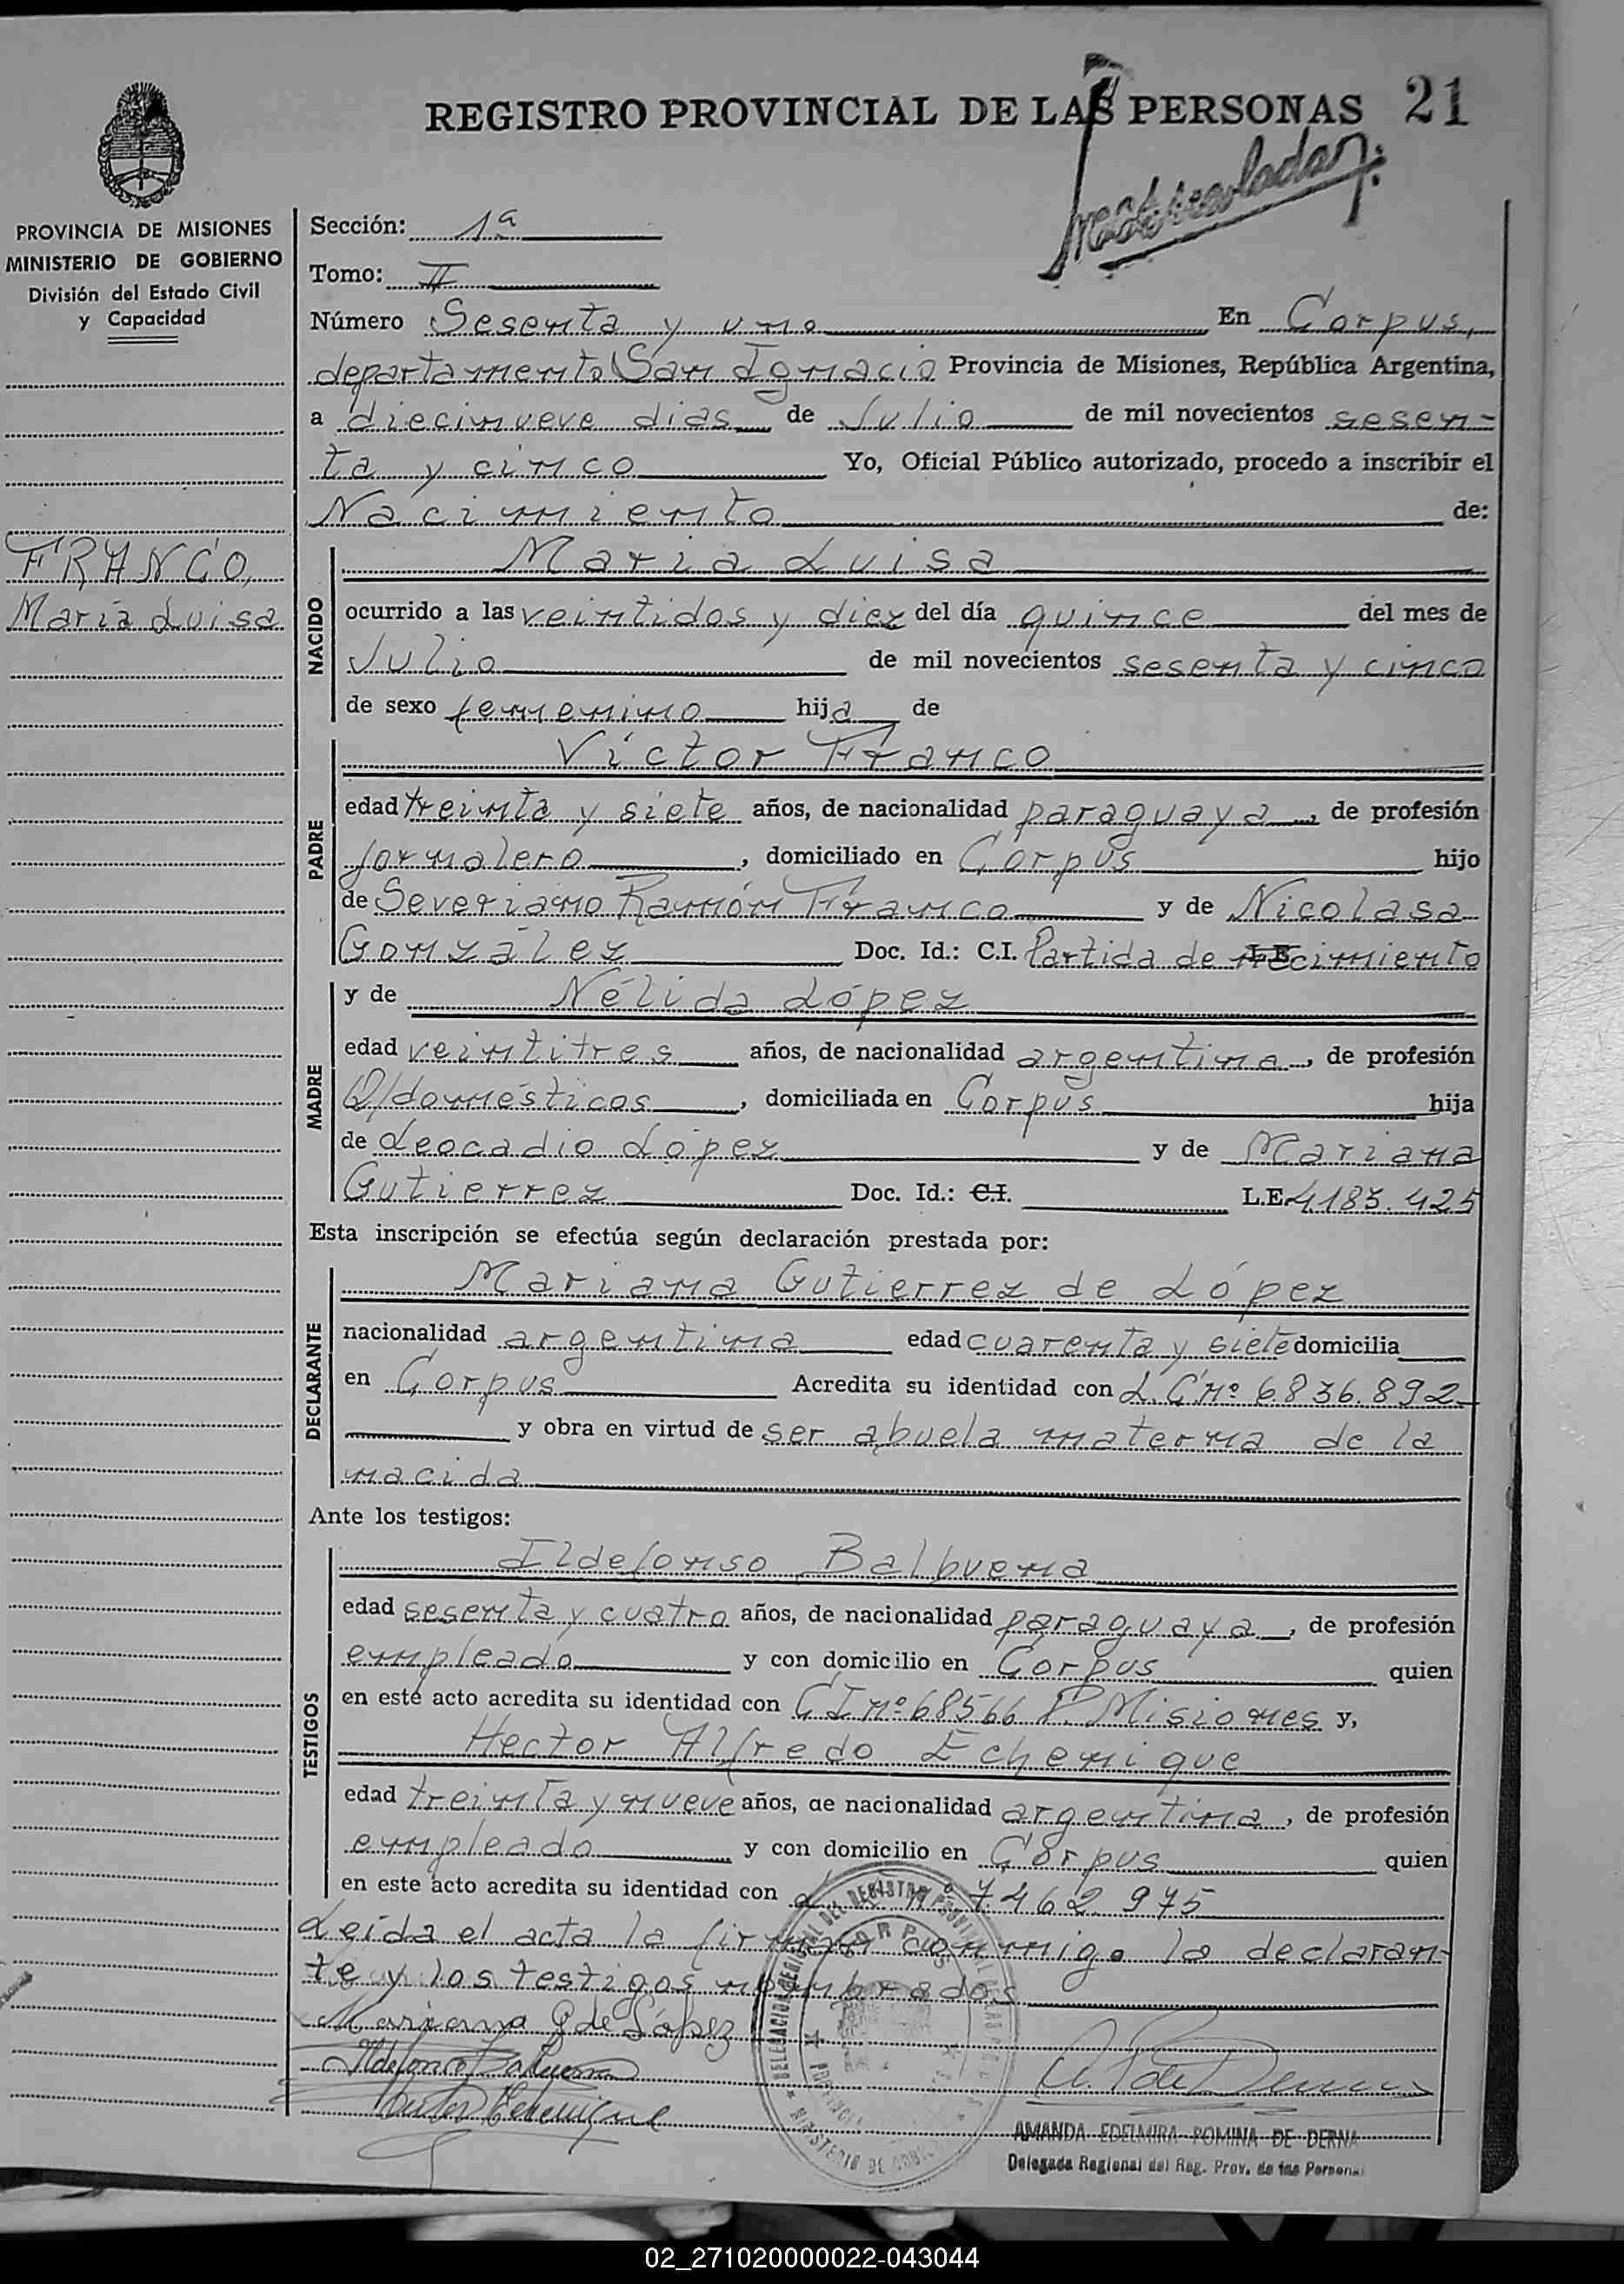 REGISTRO PROVINCIAL DE LAS PERSONAS 21
PROVINCIA DE MISIONES
MINISTERIO DE GOBIERNO
División del Estado Civil
y Capacidad
FRANCO,
María Luisa
Sección: 1ª
Tomo: II
Número Sesenta y uno En Corpus,
departamento San Ignacio Provincia de Misiones, República Argentina,
a diecinueve dias de Julio de mil novecientos sesen-
ta y cinco Yo, Oficial Público autorizado, procedo a inscribir el
Nacimiento de:
NACIDO
Maria Luisa
ocurrido a las veintidos y diez del día quince del mes de
Julio de mil novecientos sesenta y cinco
de sexo femenino hija de
PADRE
Víctor Franco
edad treinta y siete años, de nacionalidad paraguaya, de profesión
jornalero, domiciliado en Corpus hijo
de Severiano Ramón Franco y de Nicolasa
González Doc. Id.: C.I. Partida de necimiento
MADRE
y de Nélida López
edad veintitres años, de nacionalidad argentina, de profesión
Q/domésticos, domiciliada en Corpus hija
de Leocadio López y de Mariana
Gutierrez Doc. Id.: C.I. L.E. 4183.425
Esta inscripción se efectúa según declaración prestada por:
DECLARANTE
Mariana Gutierrez de López
nacionalidad argentina edad cuarenta y siete domicilia
en Corpus Acredita su identidad con L.C nº 6.836.892
y obra en virtud de ser abuela materna de la
nacida
Ante los testigos:
TESTIGOS
Ildefonso Balbuena
edad sesenta y cuatro años, de nacionalidad paraguaya, de profesión
empleado y con domicilio en Corpus quien
en este acto acredita su identidad con CI nº 68566 P. Misiones y,
Hector Alfredo Echenique
edad treinta y nueve años, de nacionalidad argentina, de profesión
empleado y con domicilio en Corpus quien
en este acto acredita su identidad con 7.462.975
Leída el acta la firman conmigo la declaran-
te y los testigos nombrados
Mariana G de López
Ildefonso Balbuena
Hector Echenique
AMANDA EDELMIRA ROMINA DE DERNA
Delegada Regional del Reg. Prov. de las Personas
02_271020000022-043044